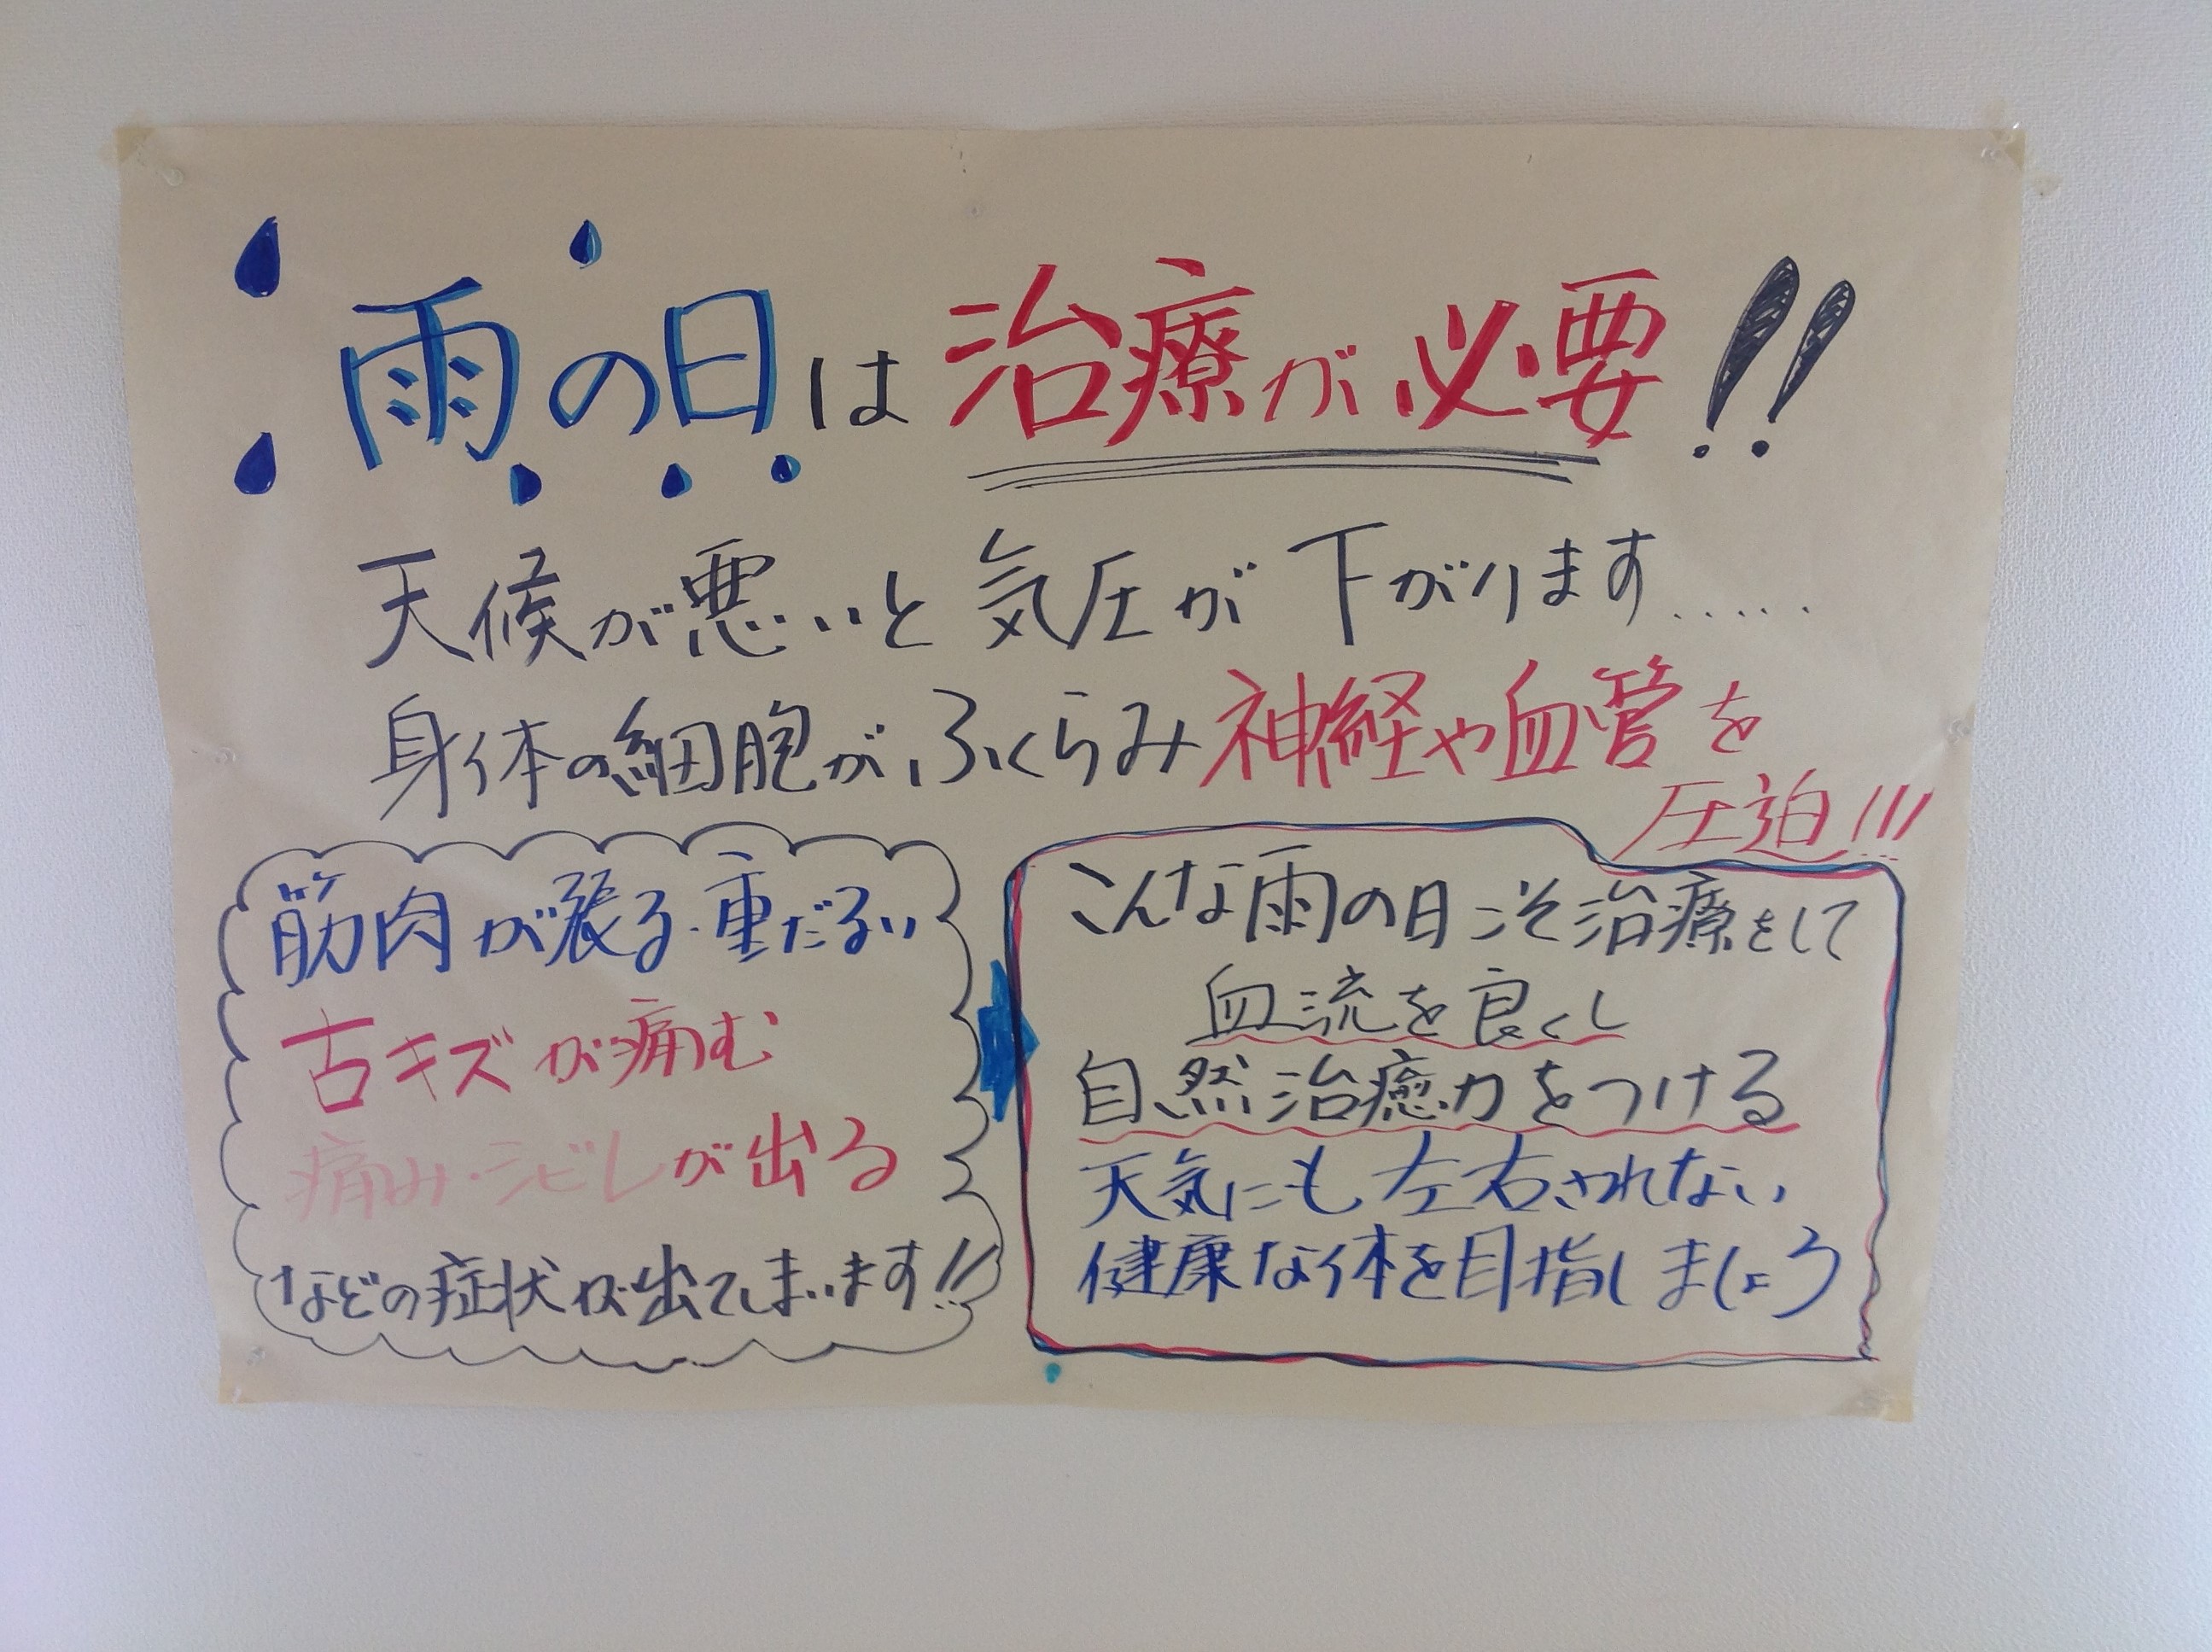 雨の日は治療が必要!!
天候が悪いと気圧が下がります.....
身体の細胞がふくらみ神経や血管を
圧迫!!!
筋肉が張る・重だるい
古キズが痛む
痛み・シビレが出る
などの症状が出てしまいます!!
こんな雨の日こそ治療をして
血流を良くし
自然治癒力をつける
天気にも左右されない
健康な体を目指しましょう